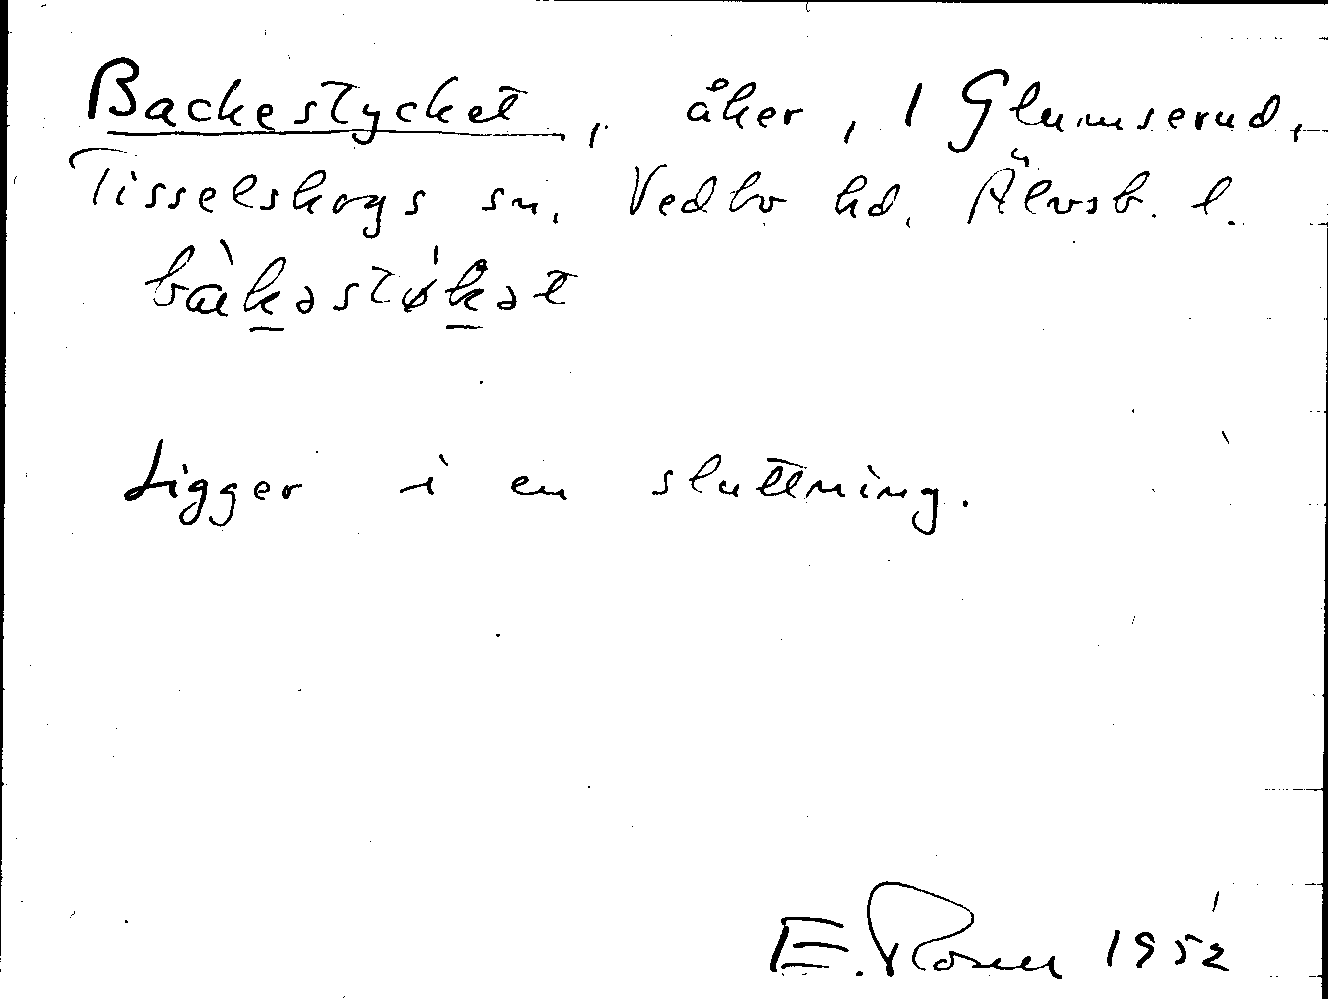 Backestycket, åker, 1 Glumserud,
Tisselskogs sn. Vedbo hd. Älvsb. l.
bàkəstǿkət
Ligger i en sluttning.
E. Rosen 1952